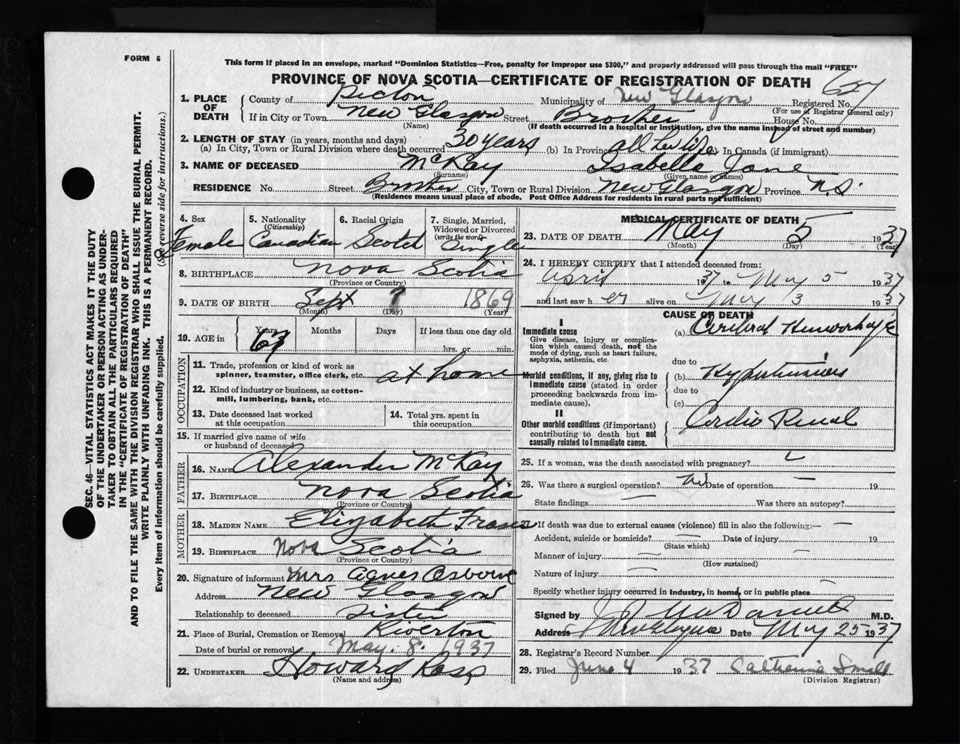 FORM 6
This form if placed in an envelope, marked "Dominion Statistics—Free, penalty for improper use $300," and properly addressed will pass through the mail "FREE"
PROVINCE OF NOVA SCOTIA—CERTIFICATE OF REGISTRATION OF DEATH
1. PLACE OF DEATH
County of Pictou Municipality of New Glasgow Registered No.
(For use of Registrar General only)
If in City or Town New Glasgow Street House No.
(Name) (If death occurred in a hospital or institution, give the name instead of street and number)
2. LENGTH OF STAY (in years, months and days)
(a) In City, Town or Rural Division where death occurred 30 years (b) In Province all her life (c) In Canada (if immigrant)
3. NAME OF DECEASED McKay Isabella Jane
(Surname) (Given name or names)
RESIDENCE No. Street City, Town or Rural Division New Glasgow Province N.S.
(Residence means usual place of abode. Post Office Address for residents in rural parts not sufficient)
4. Sex Female
5. Nationality (Citizenship) Canadian
6. Racial Origin Scotch
7. Single, Married, Widowed or Divorced (write the word) Single
8. BIRTHPLACE Nova Scotia
(Province or Country)
9. DATE OF BIRTH Sept ? 1869
(Month) (Day) (Year)
10. AGE in Years Months Days If less than one day old
hrs. or min.
OCCUPATION
11. Trade, profession or kind of work as spinner, teamster, office clerk, etc. at home
12. Kind of industry or business, as cotton-mill, lumbering, bank, etc.
13. Date deceased last worked at this occupation
14. Total yrs. spent in this occupation
15. If married give name of wife or husband of deceased
FATHER
16. NAME Alexander McKay
17. BIRTHPLACE Nova Scotia
(Province or Country)
MOTHER
18. MAIDEN NAME Elizabeth Fraser
19. BIRTHPLACE Nova Scotia
(Province or Country)
20. Signature of informant Mrs Agnes Osborne
Address New Glasgow
Relationship to deceased Sister
21. Place of Burial, Cremation or Removal Riverton
Date of burial or removal May. 8. 1937
22. UNDERTAKER Howard Ross
(Name and address)
MEDICAL CERTIFICATE OF DEATH
23. DATE OF DEATH May 5 1937
(Month) (Day) (Year)
24. I HEREBY CERTIFY that I attended deceased from:
April 1937 to May 5 1937
and last saw her alive on May 3 1937
CAUSE OF DEATH
I
Immediate cause
Give disease, injury or complication which caused death, not the mode of dying, such as heart failure, asphyxia, asthenia, etc.
(a) Cerebral Hemorrhage
due to
Morbid conditions, if any, giving rise to immediate cause (stated in order proceeding backwards from immediate cause).
(b) Hypertension
due to
(c)
II
Other morbid conditions (if important) contributing to death but not causally related to immediate cause.
Cardio Renal
25. If a woman, was the death associated with pregnancy?
26. Was there a surgical operation? No Date of operation — 19
State findings — Was there an autopsy?
27. If death was due to external causes (violence) fill in also the following:—
Accident, suicide or homicide? — Date of injury — 19
(State which)
Manner of injury —
(How sustained)
Nature of injury —
Specify whether injury occurred in industry, in home, or in public place
Signed by M.D.
Address New Glasgow Date May 25 1937
28. Registrar's Record Number
29. Filed June 4 1937 Catherine Small
(Division Registrar)
SEC. 46—VITAL STATISTICS ACT MAKES IT THE DUTY
OF THE UNDERTAKER OR PERSON ACTING AS UNDER-
TAKER TO OBTAIN ALL THE PARTICULARS REQUIRED
IN THE "CERTIFICATE OF REGISTRATION OF DEATH"
AND TO FILE THE SAME WITH THE DIVISION REGISTRAR WHO SHALL ISSUE THE BURIAL PERMIT.
WRITE PLAINLY WITH UNFADING INK. THIS IS A PERMANENT RECORD.
Every item of information should be carefully supplied. (See reverse side for instructions.)